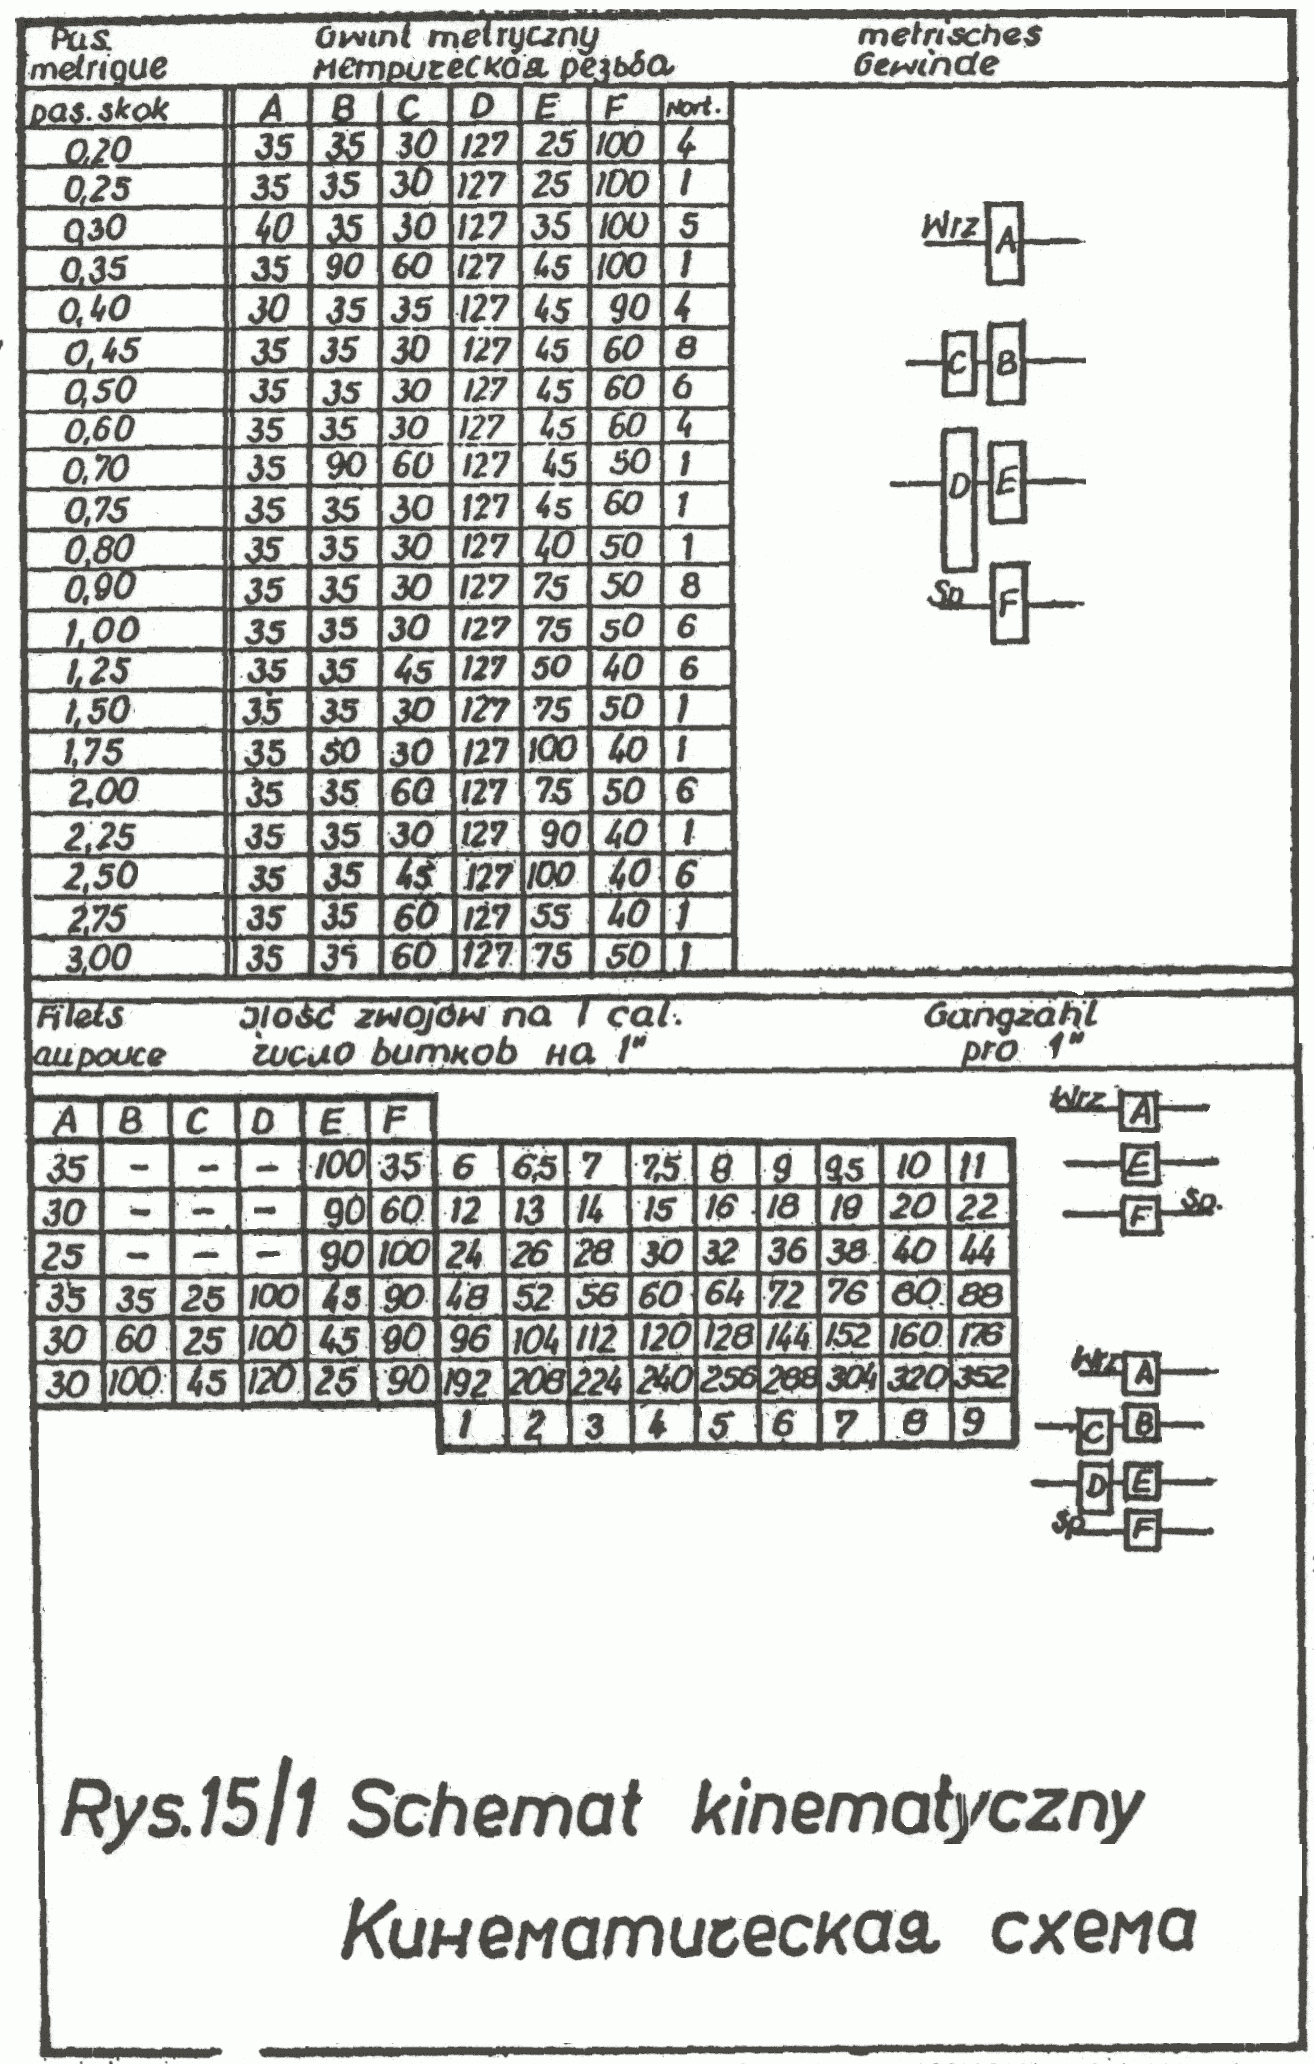 Pas. Gwint metryczny metrisches
metrique метрическая резьба Gewinde
pas. skok A B C D E F Nort.
0,20 35 35 30 127 25 100 4
0,25 35 35 30 127 25 100 1
0,30 40 35 30 127 35 100 5
0,35 35 90 60 127 45 100 1
0,40 30 35 35 127 45 90 4
0,45 35 35 30 127 45 60 8
0,50 35 35 30 127 45 60 6
0,60 35 35 30 127 45 60 4
0,70 35 90 60 127 45 50 1
0,75 35 35 30 127 45 60 1
0,80 35 35 30 127 40 50 1
0,90 35 35 30 127 75 50 8
1,00 35 35 30 127 75 50 6
1,25 35 35 45 127 50 40 6
1,50 35 35 30 127 75 50 1
1,75 35 50 30 127 100 40 1
2,00 35 35 60 127 75 50 6
2,25 35 35 30 127 90 40 1
2,50 35 35 45 127 100 40 6
2,75 35 35 60 127 55 40 1
3,00 35 35 60 127 75 50 1
Wrz A
C B
D E
Sp F
Filets Ilość zwojów na 1 cal. Gangzahl
au pouce число витков на 1" pro 1"
A B C D E F
35 - - - 100 35 6 6,5 7 7,5 8 9 9,5 10 11
30 - - - 90 60 12 13 14 15 16 18 19 20 22
25 - - - 90 100 24 26 28 30 32 36 38 40 44
35 35 25 100 45 90 48 52 56 60 64 72 76 80 88
30 60 25 100 45 90 96 104 112 120 128 144 152 160 176
30 100 45 120 25 90 192 208 224 240 256 288 304 320 352
1 2 3 4 5 6 7 8 9
Wrz A
E
F Sp.
Wrz A
C B
D E
Sp F
Rys.15/1 Schemat kinematyczny
Кинематическая схема